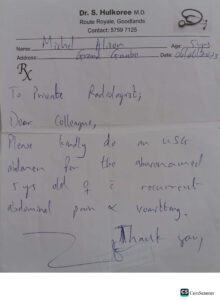 Dr. S. Hulkoree M.D.
Route Royale, Goodlands
Contact: 5759 7125
Name: Michel Age: 5yrs
Address: Grand Gaube Date:
Rx
To Private Radiologist,
Dear Colleague,
Please kindly do an USG
abdomen for the abovenamed
5 yrs old ♀ c̄ recurrent
abdominal pain & vomitting.
Thank you,
CS CamScanner